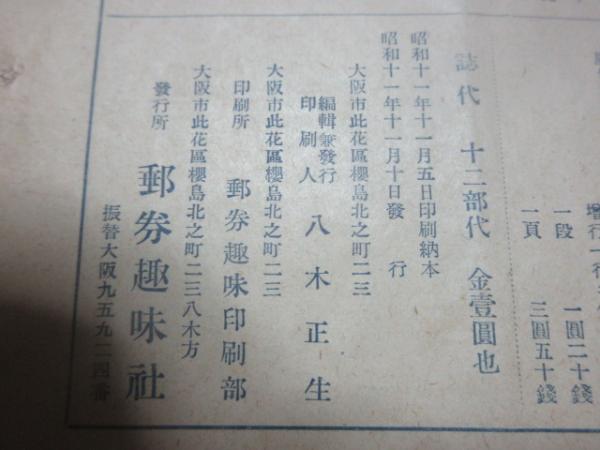 一段 一圓二十錢
一頁 三圓五十錢
誌代 十二部代 金壹圓也
昭和十一年十一月五日印刷納本
昭和十一年十一月十日發行
大阪市此花區櫻島北之町二三
編輯兼發行
印刷人 八木正生
大阪市此花區櫻島北之町二三
印刷所 郵券趣味印刷部
大阪市此花區櫻島北之町二三八木方
發行所 郵券趣味社
振替大阪九五九二四番